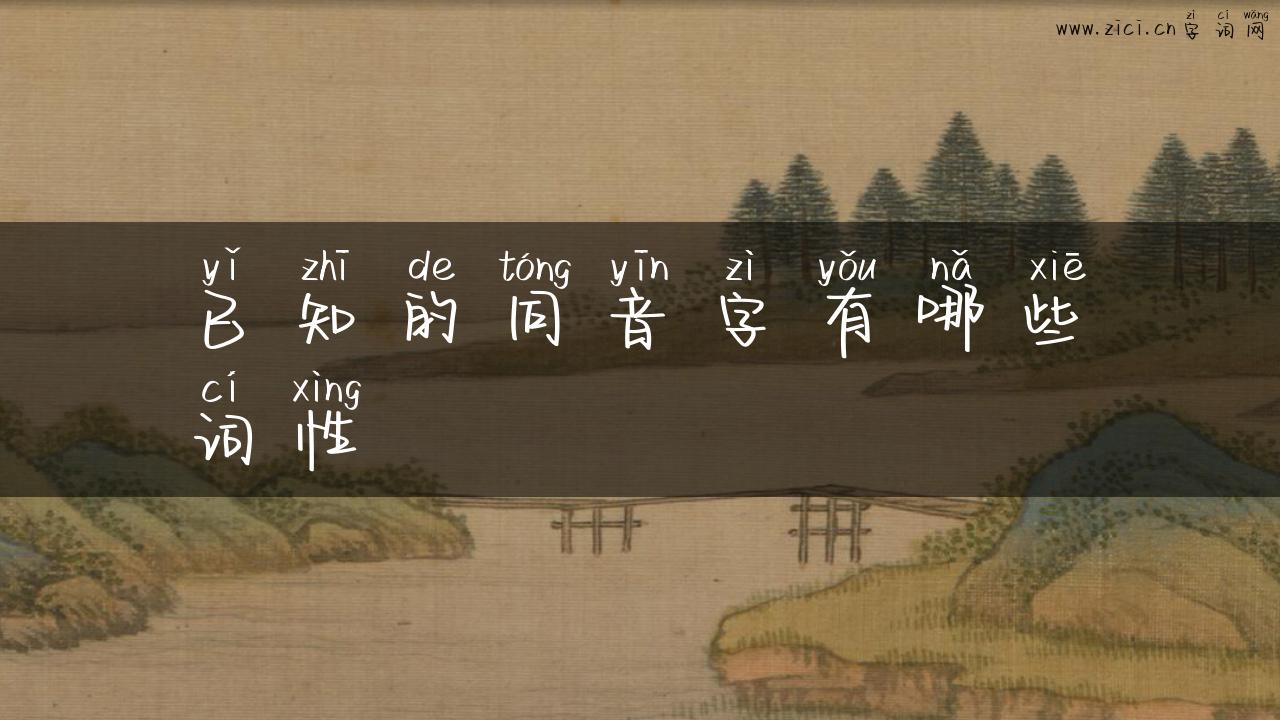 zì cí wǎng
www.zici.cn 字 词 网
yǐ zhī de tóng yīn zì yǒu nǎ xiē
已 知 的 同 音 字 有 哪 些
cí xìng
词 性